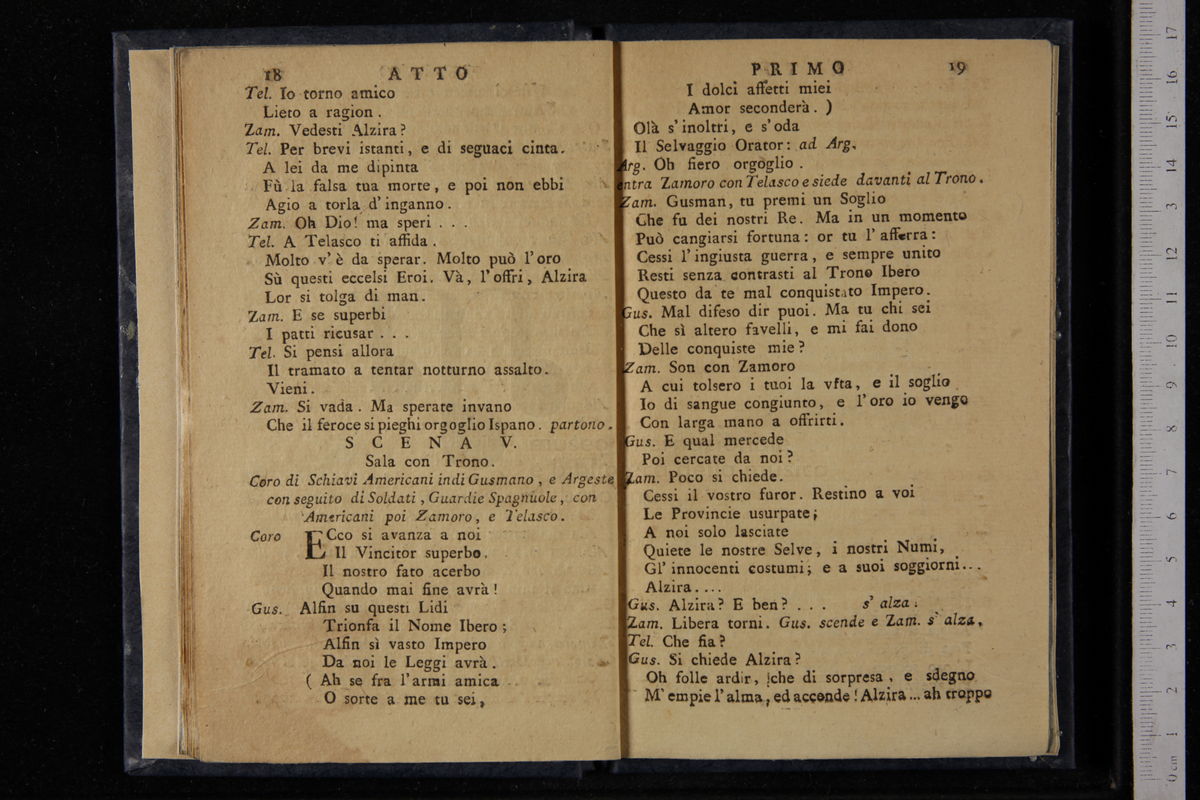 18 ATTO
Tel. Io torno amico
Lieto a ragion.
Zam. Vedesti Alzira?
Tel. Per brevi istanti, e di seguaci cinta.
A lei da me dipinta
Fù la falsa tua morte, e poi non ebbi
Agio a torla d'inganno.
Zam. Oh Dio! ma speri . . .
Tel. A Telasco ti affida.
Molto v'è da sperar. Molto può l'oro
Sù questi eccelsi Eroi. Và, l'offri, Alzira
Lor si tolga di man.
Zam. E se superbi
I patti ricusar . . .
Tel. Si pensi allora
Il tramato a tentar notturno assalto.
Vieni.
Zam. Si vada. Ma sperate invano
Che il feroce si pieghi orgoglio Ispano. partono.
SCENA V.
Sala con Trono.
Coro di Schiavi Americani indi Gusmano, e Argeste
con seguito di Soldati, Guardie Spagnuole, con
Americani poi Zamoro, e Telasco.
Coro ECco si avanza a noi
Il Vincitor superbo.
Il nostro fato acerbo
Quando mai fine avrà!
Gus. Alfin su questi Lidi
Trionfa il Nome Ibero;
Alfin sì vasto Impero
Da noi le Leggi avrà.
( Ah se fra l'armi amica
O sorte a me tu sei,
PRIMO 19
I dolci affetti miei
Amor seconderà. )
Olà s'inoltri, e s'oda
Il Selvaggio Orator: ad Arg.
Arg. Oh fiero orgoglio.
entra Zamoro con Telasco e siede davanti al Trono.
Zam. Gusman, tu premi un Soglio
Che fu dei nostri Re. Ma in un momento
Può cangiarsi fortuna: or tu l'afferra:
Cessi l'ingiusta guerra, e sempre unito
Resti senza contrasti al Trono Ibero
Questo da te mal conquistato Impero.
Gus. Mal difeso dir puoi. Ma tu chi sei
Che sì altero favelli, e mi fai dono
Delle conquiste mie?
Zam. Son con Zamoro
A cui tolsero i tuoi la vfta, e il soglio
Io di sangue congiunto, e l'oro io vengo
Con larga mano a offrirti.
Gus. E qual mercede
Poi cercate da noi?
Zam. Poco si chiede.
Cessi il vostro furor. Restino a voi
Le Provincie usurpate;
A noi solo lasciate
Quiete le nostre Selve, i nostri Numi,
Gl'innocenti costumi; e a suoi soggiorni...
Alzira....
Gus. Alzira? E ben? . . . s'alza.
Zam. Libera torni. Gus. scende e Zam. s'alza.
Tel. Che fia?
Gus. Si chiede Alzira?
Oh folle ardir, che di sorpresa, e sdegno
M'empie l'alma, ed acconde! Alzira... ah troppo
0 cm 1 2 3 4 5 6 7 8 9 10 11 12 13 14 15 16 17